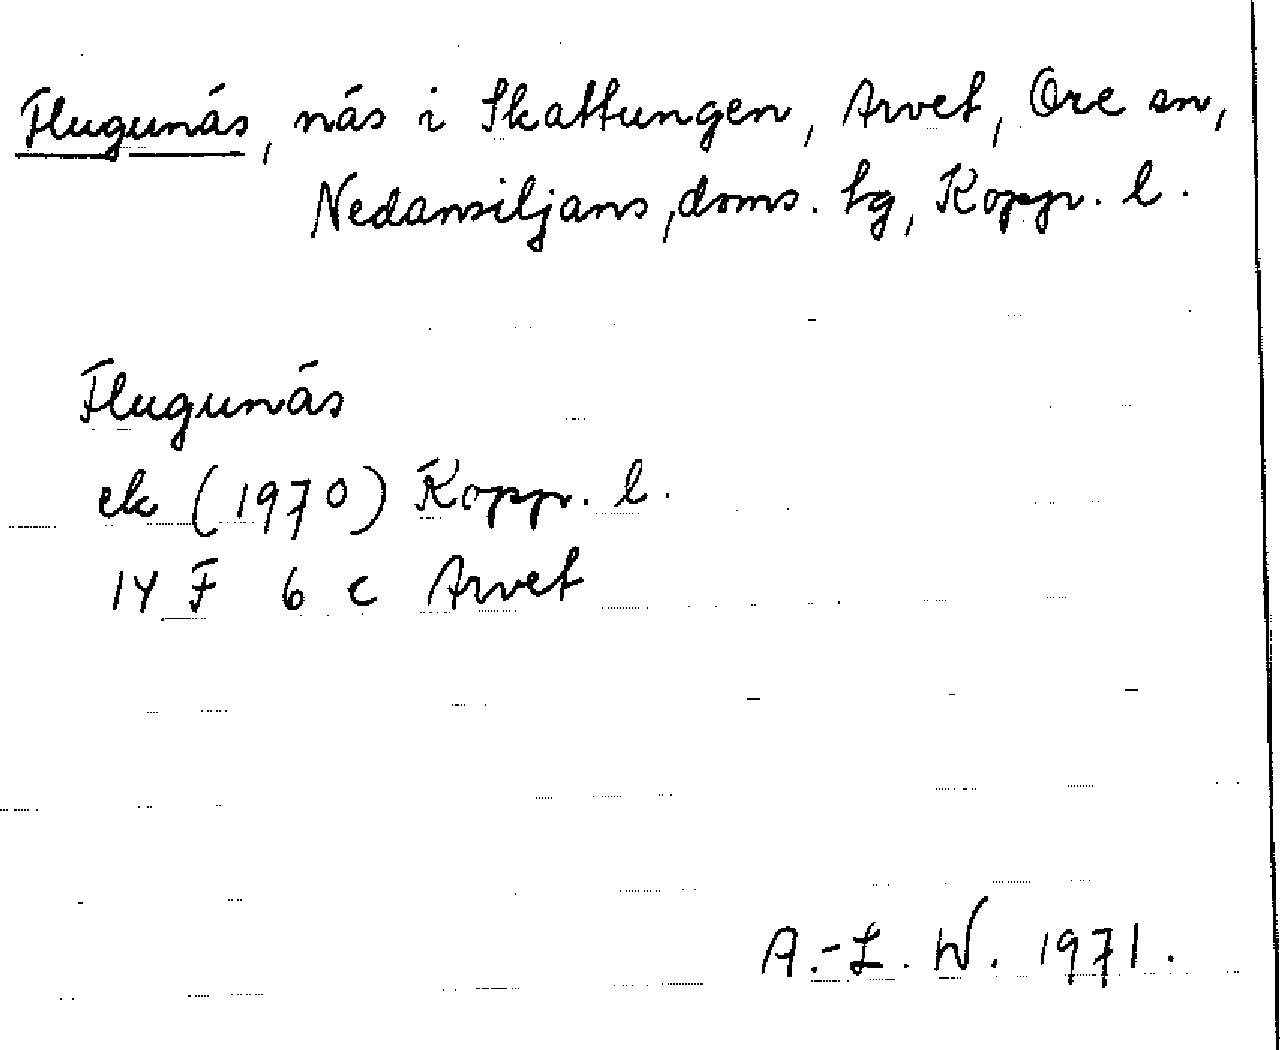 Flugunäs, näs i Skattungen, Arvet, Ore sn,
Nedansiljans, doms. tg, Koppr. l.
Flugunäs
ek (1970) Koppr. l.
14 F 6 c Arvet
A.-L. W. 1971.